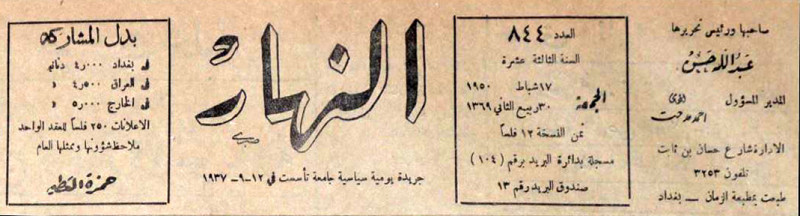 صاحبها ورئيس تحريرها
عبدالله حسن
المدير المسؤول
احمد مدحت
الادارة شارع حسان بن ثابت
تلفون ٣٢٥٣
طبعت بمطبعة الزمان — بغداد
العدد ٨٤٤
السنة الثالثة عشرة
الجمعة
١٧ شباط ١٩٥٠
٣٠ ربيع الثاني ١٣٦٩
ثمن النسخة ١٢ فلساً
مسجلة بدائرة البريد برقم (١٠٤)
صندوق البريد رقم ١٣
النهار
جريدة يومية سياسية جامعة تأسست في ١٢-٩-١٩٣٧
بدل المشاركة
في بغداد ٤٫٠٠٠ دنانير
في العراق ٤٫٥٠٠ »
في الخارج ٥٫٠٠٠ »
الاعلانات ٢٥٠ فلساً للعقد الواحد
ملاحظ شؤونها وممثلها العام
حمزة